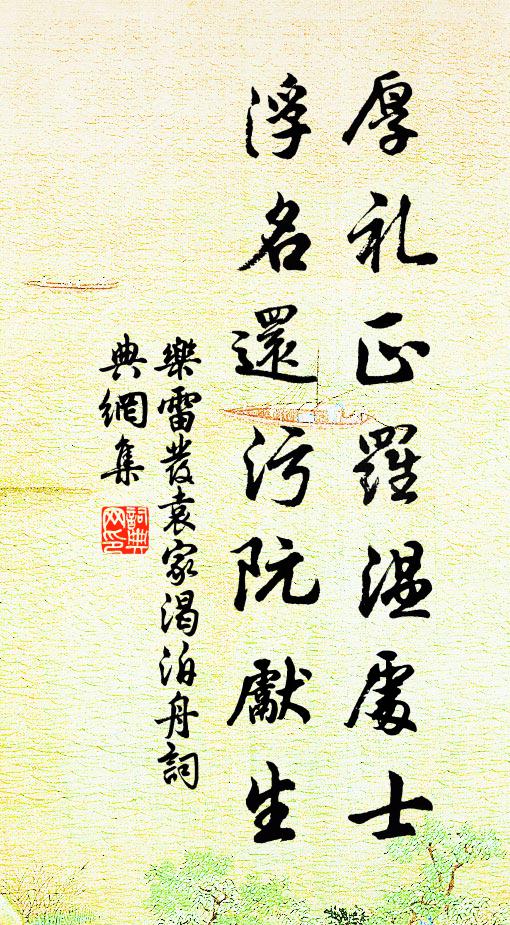 厚礼正羅温處士
浮名還污阮獻生
樂雷發袁家渴泊舟詞
典網集
詞典
网印